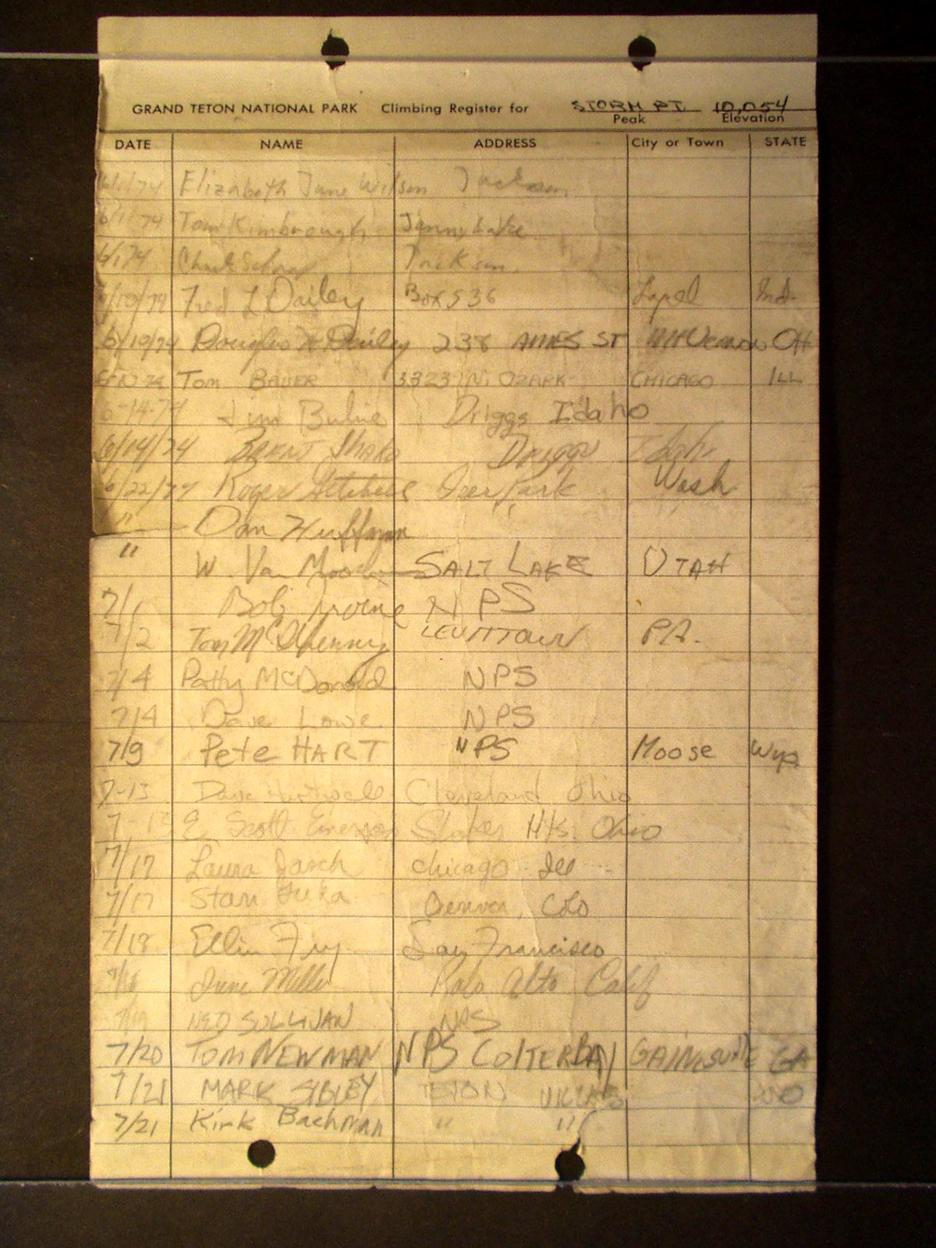 GRAND TETON NATIONAL PARK Climbing Register for STORM PT. 10,054
Peak Elevation
DATE NAME ADDRESS City or Town STATE
6/1/74 Elizabeth June Wilson Jackson
6/1/74 Tom Kimbrough Jenny Lake
6/1/74 Chuck Jackson
6/10/74 Fred L Dailey Box 536 Lapel Ind.
6/10/74 Douglas Dailey 238 AMES ST Mt Vernon OH
Tom BAUER 3323 N. OZARK CHICAGO ILL
6-14-74 Jim Driggs Idaho
6/14/74 BRENT DRIGGS Idah.
6/22/74 Roger Deer Park Wash
" Dan Huffman "
" W. Van SALT LAKE UTAH
7/1 Bob Irvine NPS
7/2 Tom LEVITTOWN PA.
7/4 Patty McDonald NPS
7/4 Dave Lowe NPS
7/9 Pete HART NPS Moose Wyo
7-13 Dave Cleveland Ohio
7-13 E. Scott Emerson Shaker Hts. Ohio
7/17 Laura Chicago Ill
7/17 Stan Denver, Colo
7/18 Ellin Fry San Francisco
June Miller Palo Alto Calif
NED SULLIVAN NPS
7/20 TOM NEWMAN NPS COLTER BAY GAINSVILLE GA
7/21 MARK SIBLEY TETON VILLAG
7/21 Kirk Bachman " "